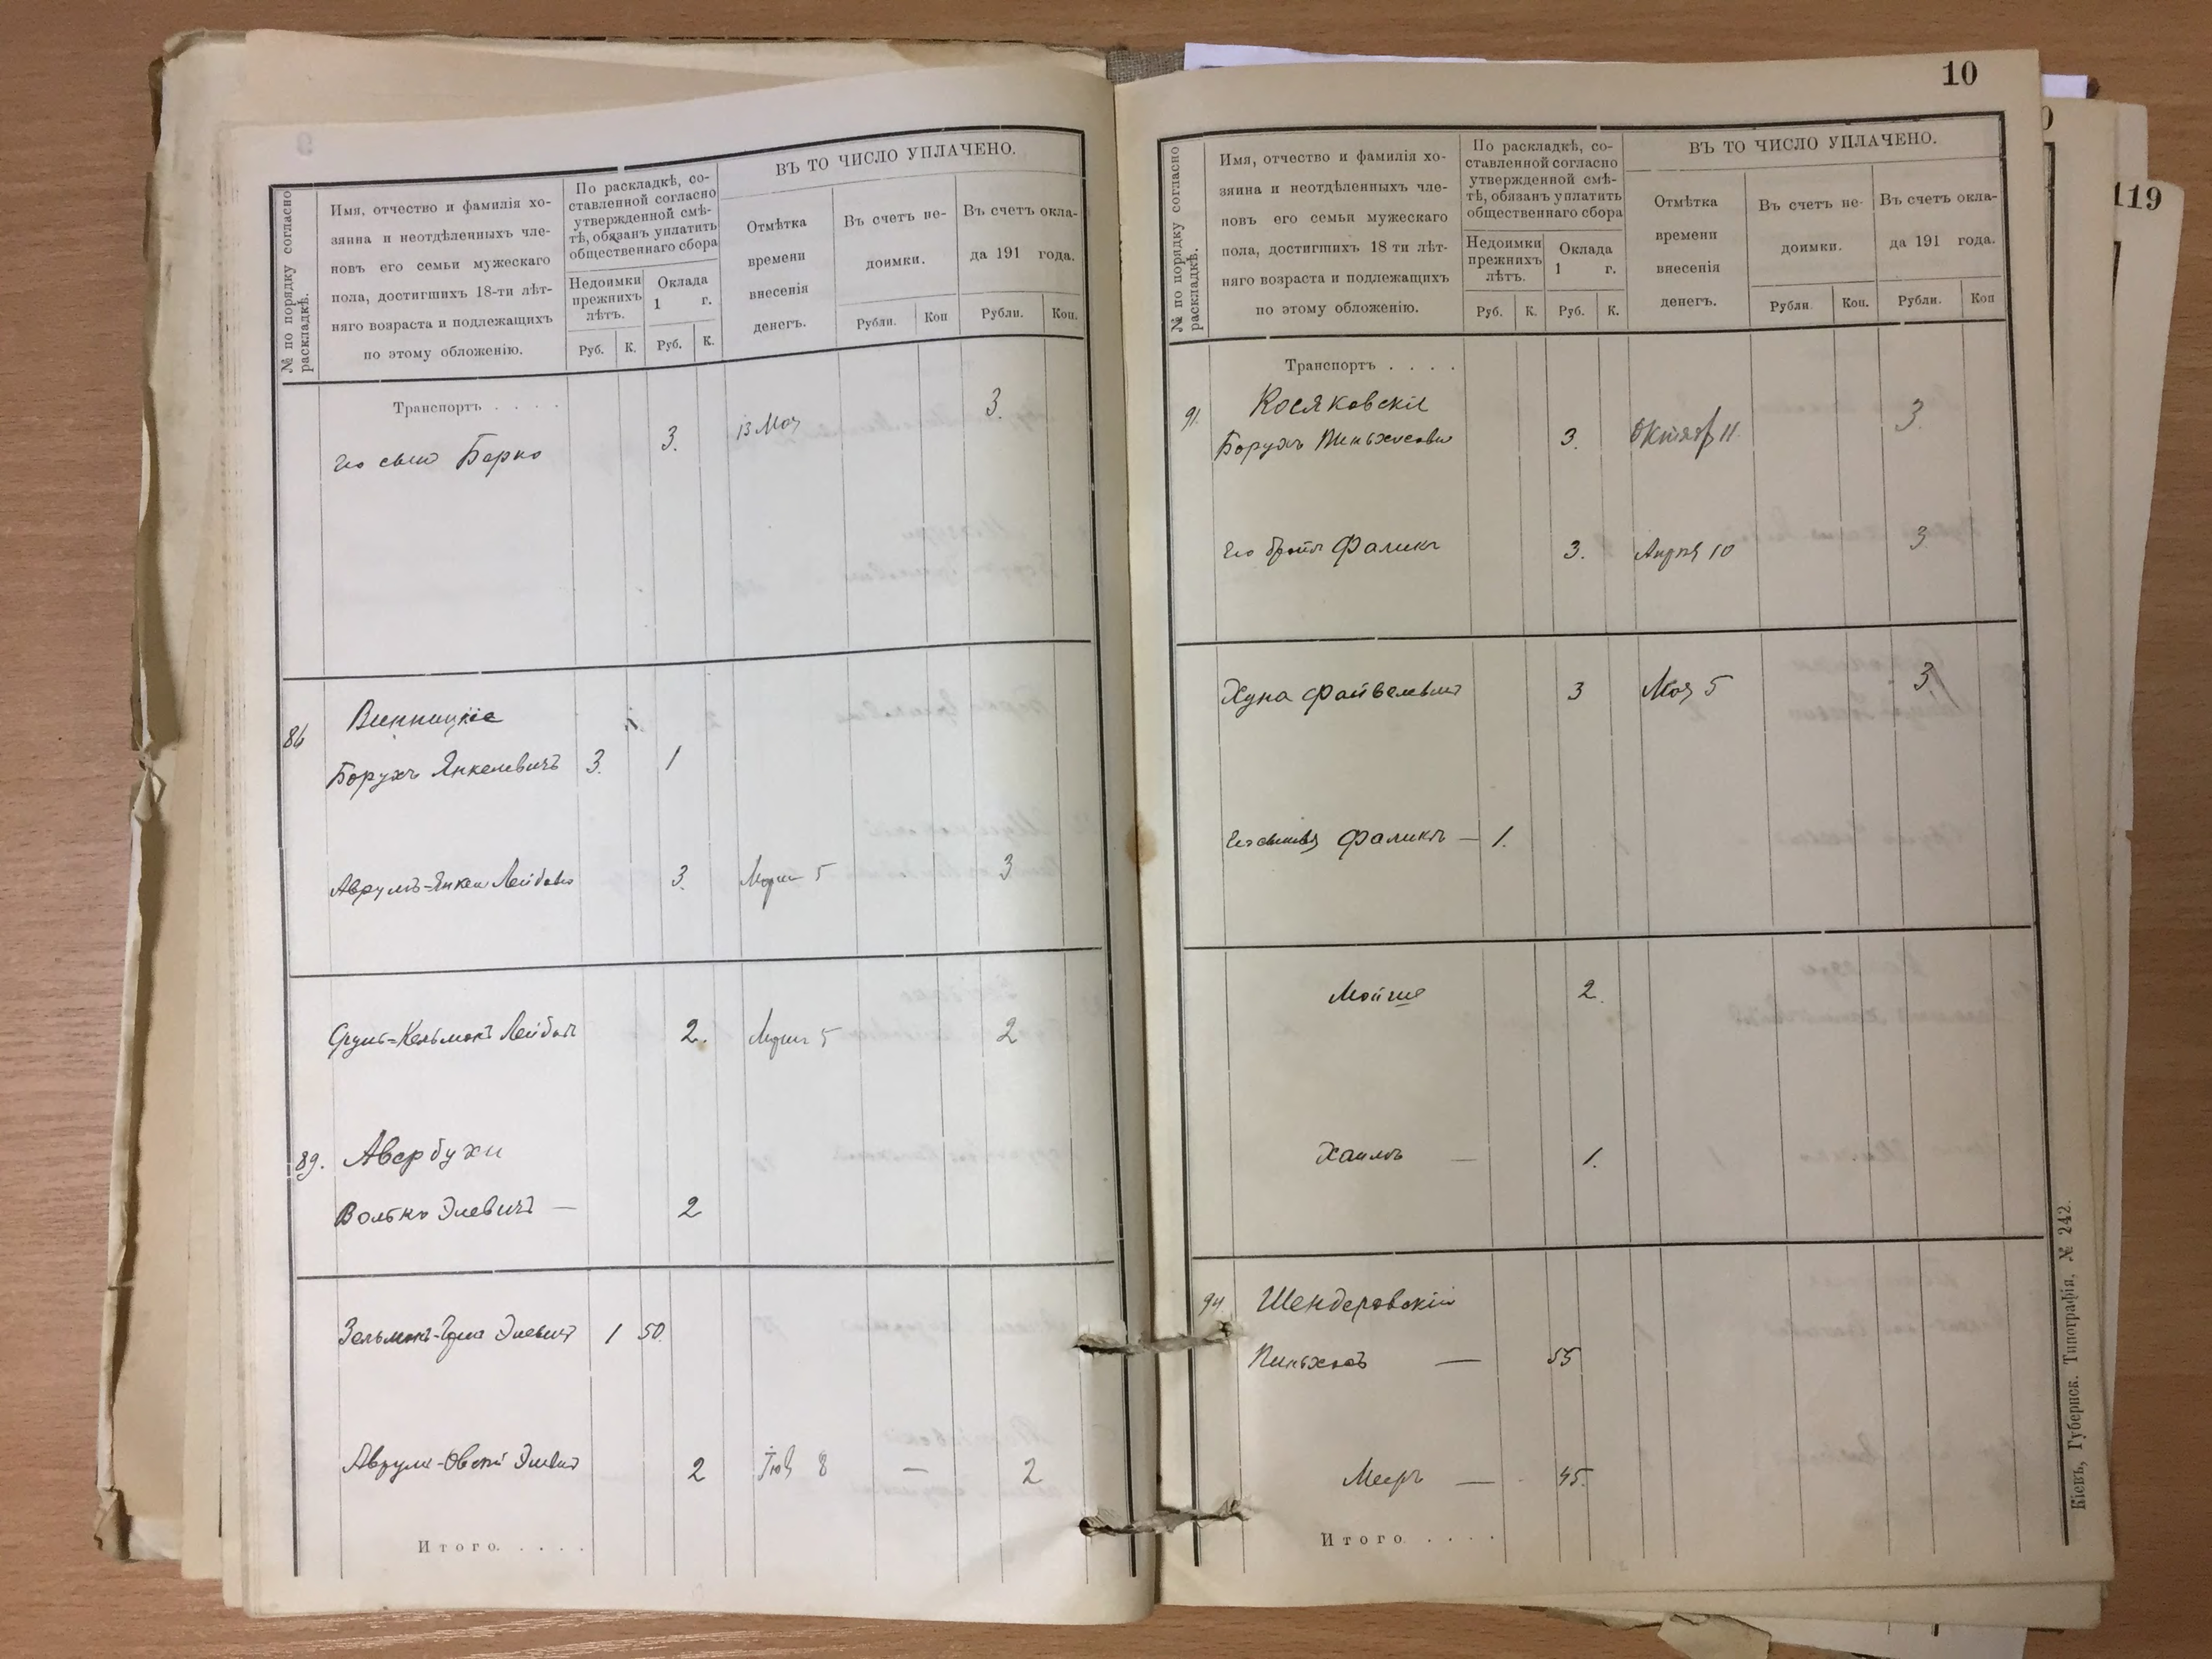 № по порядку согласно
раскладкѣ.
Имя, отчество и фамилія хо-
зяина и неотдѣленныхъ чле-
новъ его семьи мужескаго
пола, достигшихъ 18-ти лѣт-
няго возраста и подлежащихъ
по этому обложенію.
По раскладкѣ, со-
ставленной согласно
утвержденной смѣ-
тѣ, обязанъ уплатить
общественнаго сбора
Недоимки
прежнихъ
лѣтъ.
Оклада
1 г.
Руб. К. Руб. К.
ВЪ ТО ЧИСЛО УПЛАЧЕНО.
Отмѣтка
времени
внесенія
денегъ.
Въ счетъ не-
доимки.
Рубли. Коп
Въ счетъ окла-
да 191 года.
Рубли. Коп.
Транспортъ . . . .
Его сынъ Берко 3. 13 Мая 3.
86 Винницкіе
Борухъ Янкелевичъ 3. 1
Аврумъ-Янкель Лейбовъ 3. 5 3
Лейбов 2. 5 2
89. Авербухи
Волько Элевичъ — 2
Зельманъ- Элевич 1 50.
Аврумъ- Элевич 2 8 — 2
Итого. . . . .
10
№ по порядку согласно
раскладкѣ.
Имя, отчество и фамилія хо-
зяина и неотдѣленныхъ чле-
новъ его семьи мужескаго
пола, достигшихъ 18 ти лѣт-
няго возраста и подлежащихъ
по этому обложенію.
По раскладкѣ, со-
ставленной согласно
утвержденной смѣ-
тѣ, обязанъ уплатить
общественнаго сбора
Недоимки
прежнихъ
лѣтъ.
Оклада
1 г.
Руб. К. Руб. К.
ВЪ ТО ЧИСЛО УПЛАЧЕНО.
Отмѣтка
времени
внесенія
денегъ.
Въ счетъ не-
доимки.
Рубли. Коп.
Въ счетъ окла-
да 191 года.
Рубли. Коп
Транспортъ . . . .
91. Косяковскіе
Борухъ Пиньхасовъ 3. Октяб 11. 3.
Его братъ Фаликъ 3. Апрѣ 10 3
Хуна Файвелевич 3 Мая 5 3
Его сыновья Фаликъ — 1.
Мойше 2.
Хаимъ — 1.
94. Шендеровскій
Пиньхасъ — 55
Мееръ — 45.
Итого . . . .
Кіевъ, Губернск. Типографія, № 242.
119